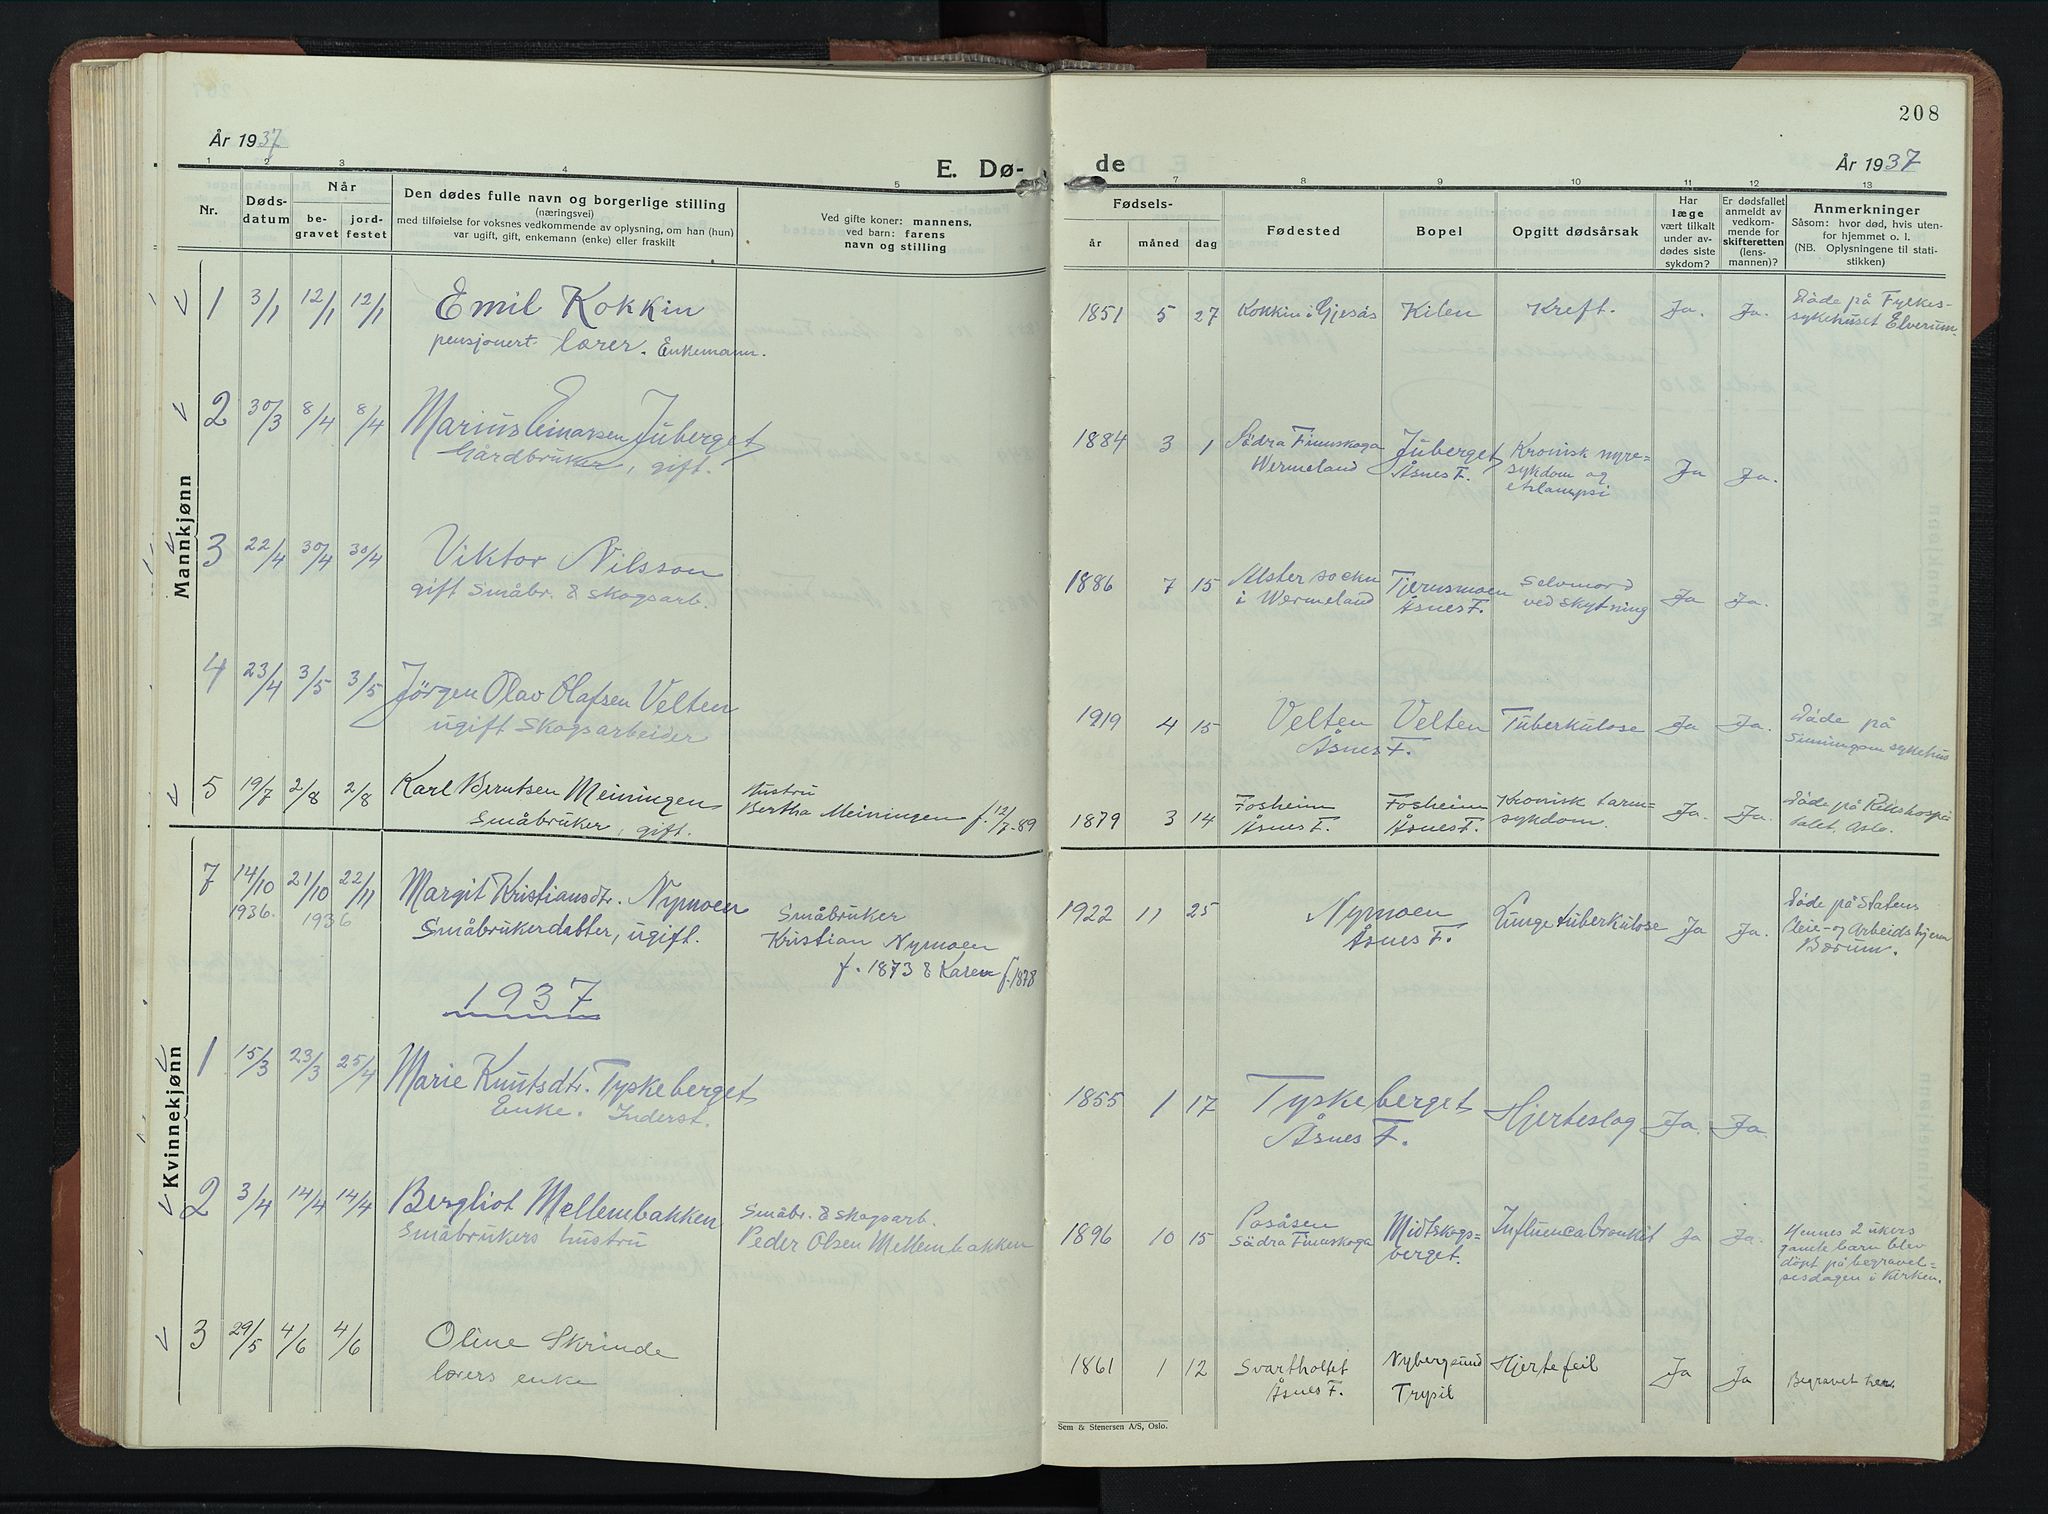 208
År 1937
E. Dø-
de
År 1937
1 2 3 4 5 7 8 9 10 11 12 13
Nr.
Døds-
datum
Når
be-
gravet
jord-
festet
Den dødes fulle navn og borgerlige stilling
(næringsvei)
med tilføielse for voksnes vedkommende av oplysning, om han (hun)
var ugift, gift, enkemann (enke) eller fraskilt
Ved gifte koner: mannens,
ved barn: farens
navn og stilling
Fødsels-
år måned dag
Fødested
Bopel
Opgitt dødsårsak
Har
læge
vært tilkalt
under av-
dødes siste
sykdom?
Er dødsfallet
anmeldt av
vedkom-
mende for
skifteretten
(lens-
mannen)?
Anmerkninger
Såsom: hvor død, hvis uten-
for hjemmet o. l.
(NB. Oplysningene til stati-
stikken)
Mannkjønn
1 3/1 12/1 12/1 Emil Kokkin
pensjonert lærer. Enkemann.
1851 5 27 Kokkin i Gjesås Kilen Kreft. Ja. Ja. Døde på Fylkes-
sykehuset Elverum.
2 30/3 8/4 8/4 Marius Einarsen Juberget
Gårdbruker, gift.
1884 3 1 Södra Finnskoga Juberget Kronisk nyre=
Wermeland Åsnes F. sykdom og Ja Ja.
3 22/4 30/4 30/4 Viktor Nilsson
gift Småbr. & skogsarb.
1886 7 15 Alster socken Tjernsmoen Selvmord
i Wermeland Åsnes F. ved skytning Ja Ja.
4 23/4 3/5 3/5 Jörgen Olav Olafsen Velten
ugift Skogsarbeider
1919 4 15 Velten Velten Tuberkulose Ja Ja. Døde på
Åsnes F. sykehus
5 19/7 2/8 2/8 Karl Berntsen Meiningen
Småbruker, gift.
Hustru
Bertha Meiningen f. 12/7-89
1879 3 14 Fosheim Fosheim Kronisk tarm=
Åsnes F. Åsnes F. sykdom. Ja. Ja. Døde på Rikshospi
talet, Oslo.
Kvinnekjønn
7 14/10 21/10 22/11 Margit Kristiansdtr. Nymoen
1936. 1936 Småbrukerdatter, ugift.
Småbruker
Kristian Nymoen
f. 1873 & Karen f. 1878
1922 11 25 Nymoen Lungetuberkulose Ja Ja. Døde på Statens
Åsnes F. Pleie- og Arbeidshjem
Bærum.
1937
1 15/3 23/3 25/4 Marie Knutsdtr. Tyskeberget
Enke. Inderst.
1855 1 17 Tyskeberget Hjerteslag Ja. Ja.
Åsnes F.
2 3/4 14/4 14/4 Bergliot Mellembakken
Småbrukers hustru
Småbr. & skogsarb.
Peder Olsen Mellembakken
1896 10 15 Posåsen Midtskogs- Influenca Bronkit Ja Ja.
Södra Finnskoga berget.
Hennes 2 ukers
gamle barn blev
döpt på begravel=
sesdagen i kirken.
3 29/5 4/6 4/6 Oline Skrinde
lærers enke
1861 1 12 Svartholtet Nybergsund Hjertefeil Ja Ja Begravet her.
Åsnes F. Trysil
Sem & Stenersen A/S, Oslo.